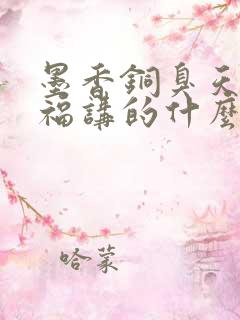 墨香銅臭天
福講的什麼
哈蒙